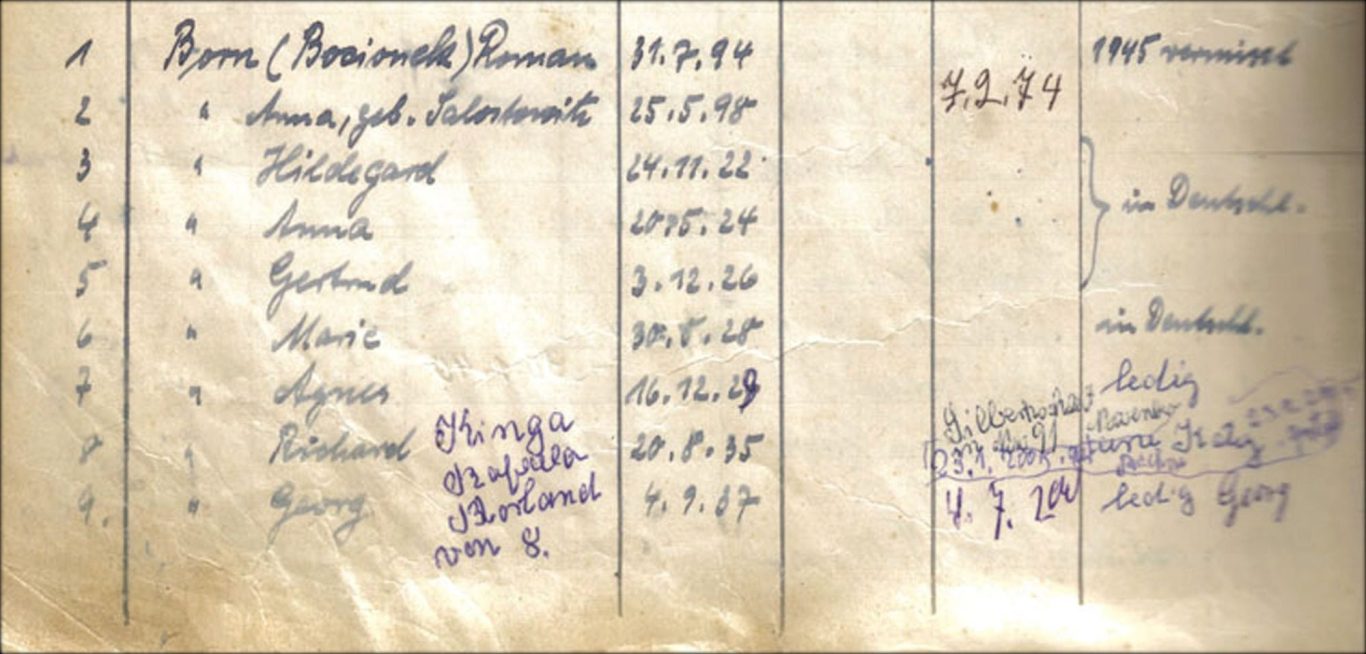 1 Born (Bocionek) Roman 31.7.94 1945 vermisst
2 " Anna, geb. 25.5.98 7.2.74
3 " Hildegard 24.11.22
4 " Anna 24
5 " Gertrud 3.12.26
in Deutschl.
6 " Marie 28 in Deutschl.
7 " Agnes 16.12.29 ledig
8 " Richard 20.8.35
Kinga
Rafaela
Roland
von 8.
9. " Georg 4.9.37 4.7. ledig Georg